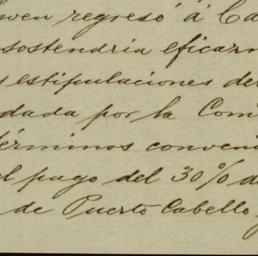 wen regresó á Ca
sostendria eficazm
s estipulaciones de
dada por la Com
términos conveni
l pago del 30% d
de Puerto Cabello y